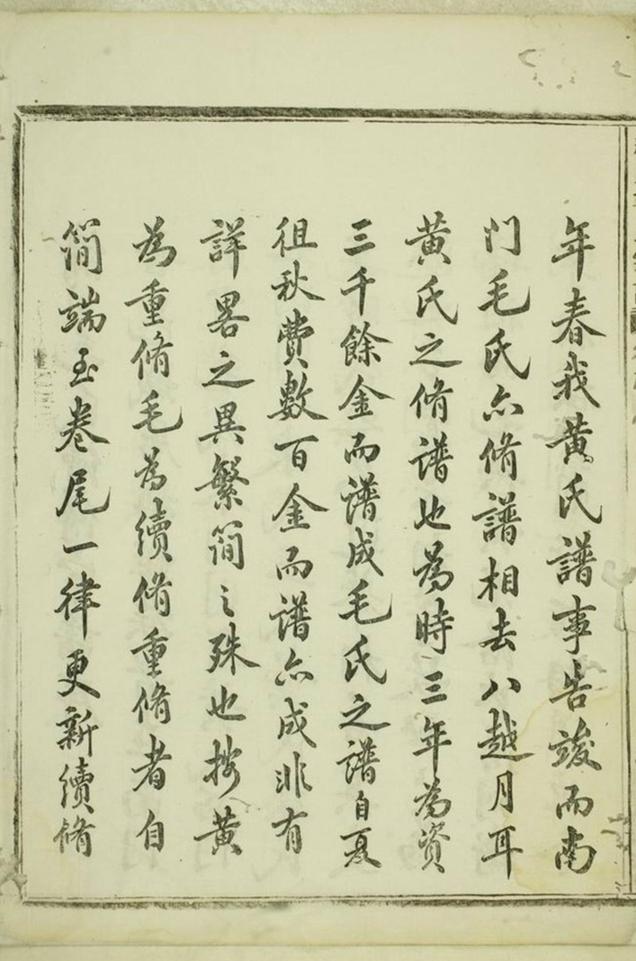 年春我黃氏譜事告竣而南
门毛氏亦脩譜相去八越月耳
黃氏之脩譜也為時三年為资
三千餘金而譜成毛氏之譜自夏
徂秋費數百金而譜亦成非有
詳畧之異繁简之殊也按黃
為重脩毛為續脩重脩者自
简端至卷尾一律更新續脩